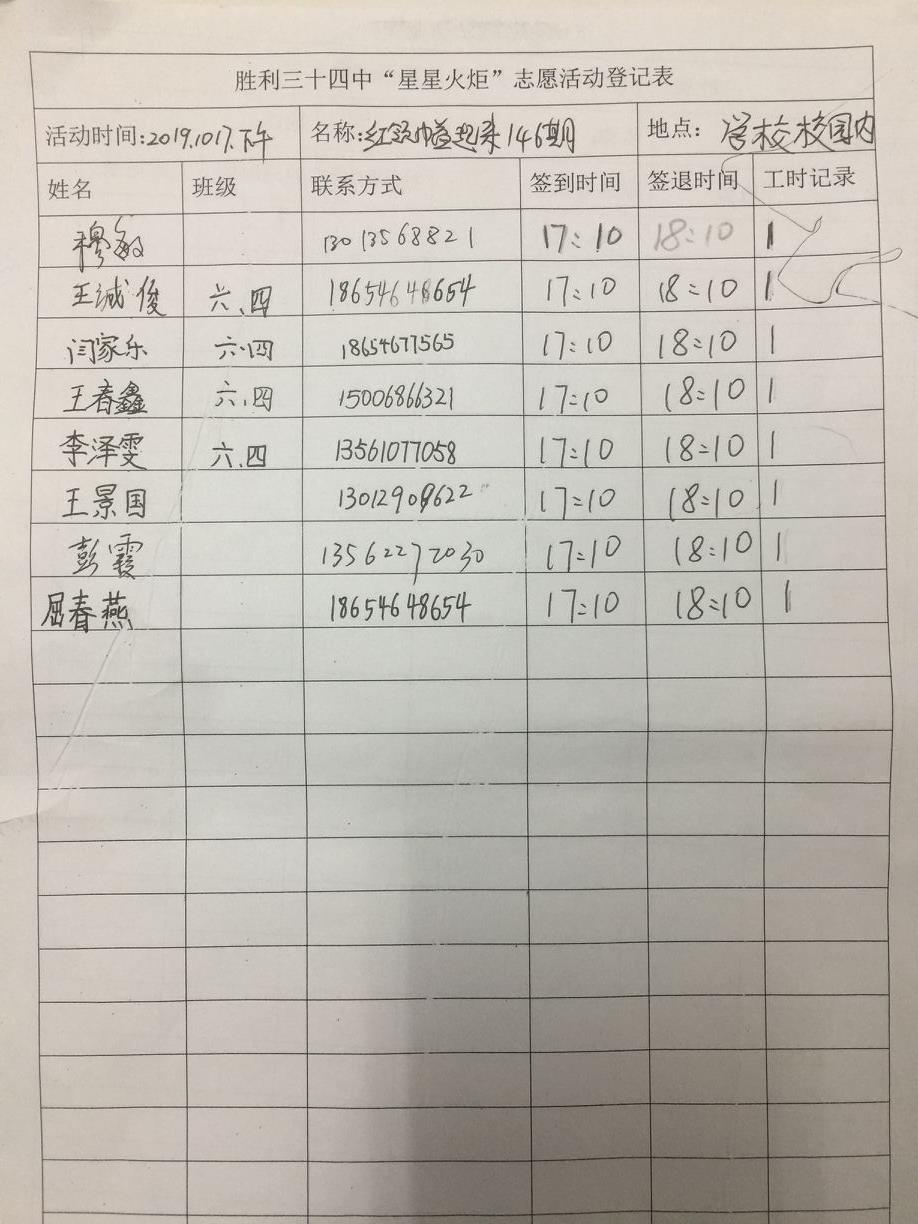 胜利三十四中“星星火炬”志愿活动登记表
活动时间:2019.1017.下午 名称:红领巾益起来146期 地点: 学校校园内
姓名 班级 联系方式 签到时间 签退时间 工时记录
穆敏 13013568821 17:10 18:10 1
王诚俊 六.四 18654648654 17:10 18:10 1
闫家乐 六.四 18654677565 17:10 18:10 1
王春鑫 六.四 15006866321 17:10 18:10 1
李泽雯 六.四 13561077058 17:10 18:10 1
王景国 17:10 18:10 1
彭霞 13562272030 17:10 18:10 1
屈春燕 18654648654 17:10 18:10 1